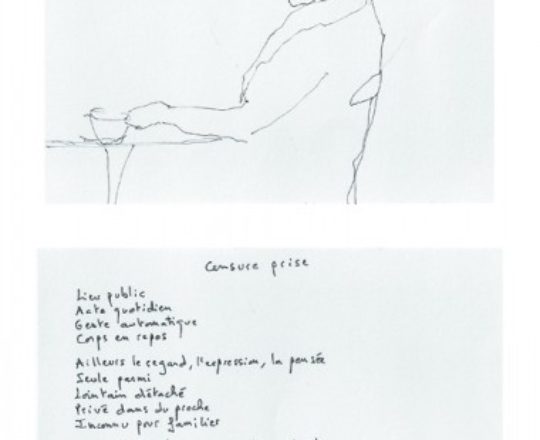 Censure prise
Lieu public
Acte quotidien
Geste automatique
Corps en repos
Ailleurs le regard, l'expression, la pensée
Seule parmi
Lointain détaché
Privé dans du proche
Inconnu pour familier